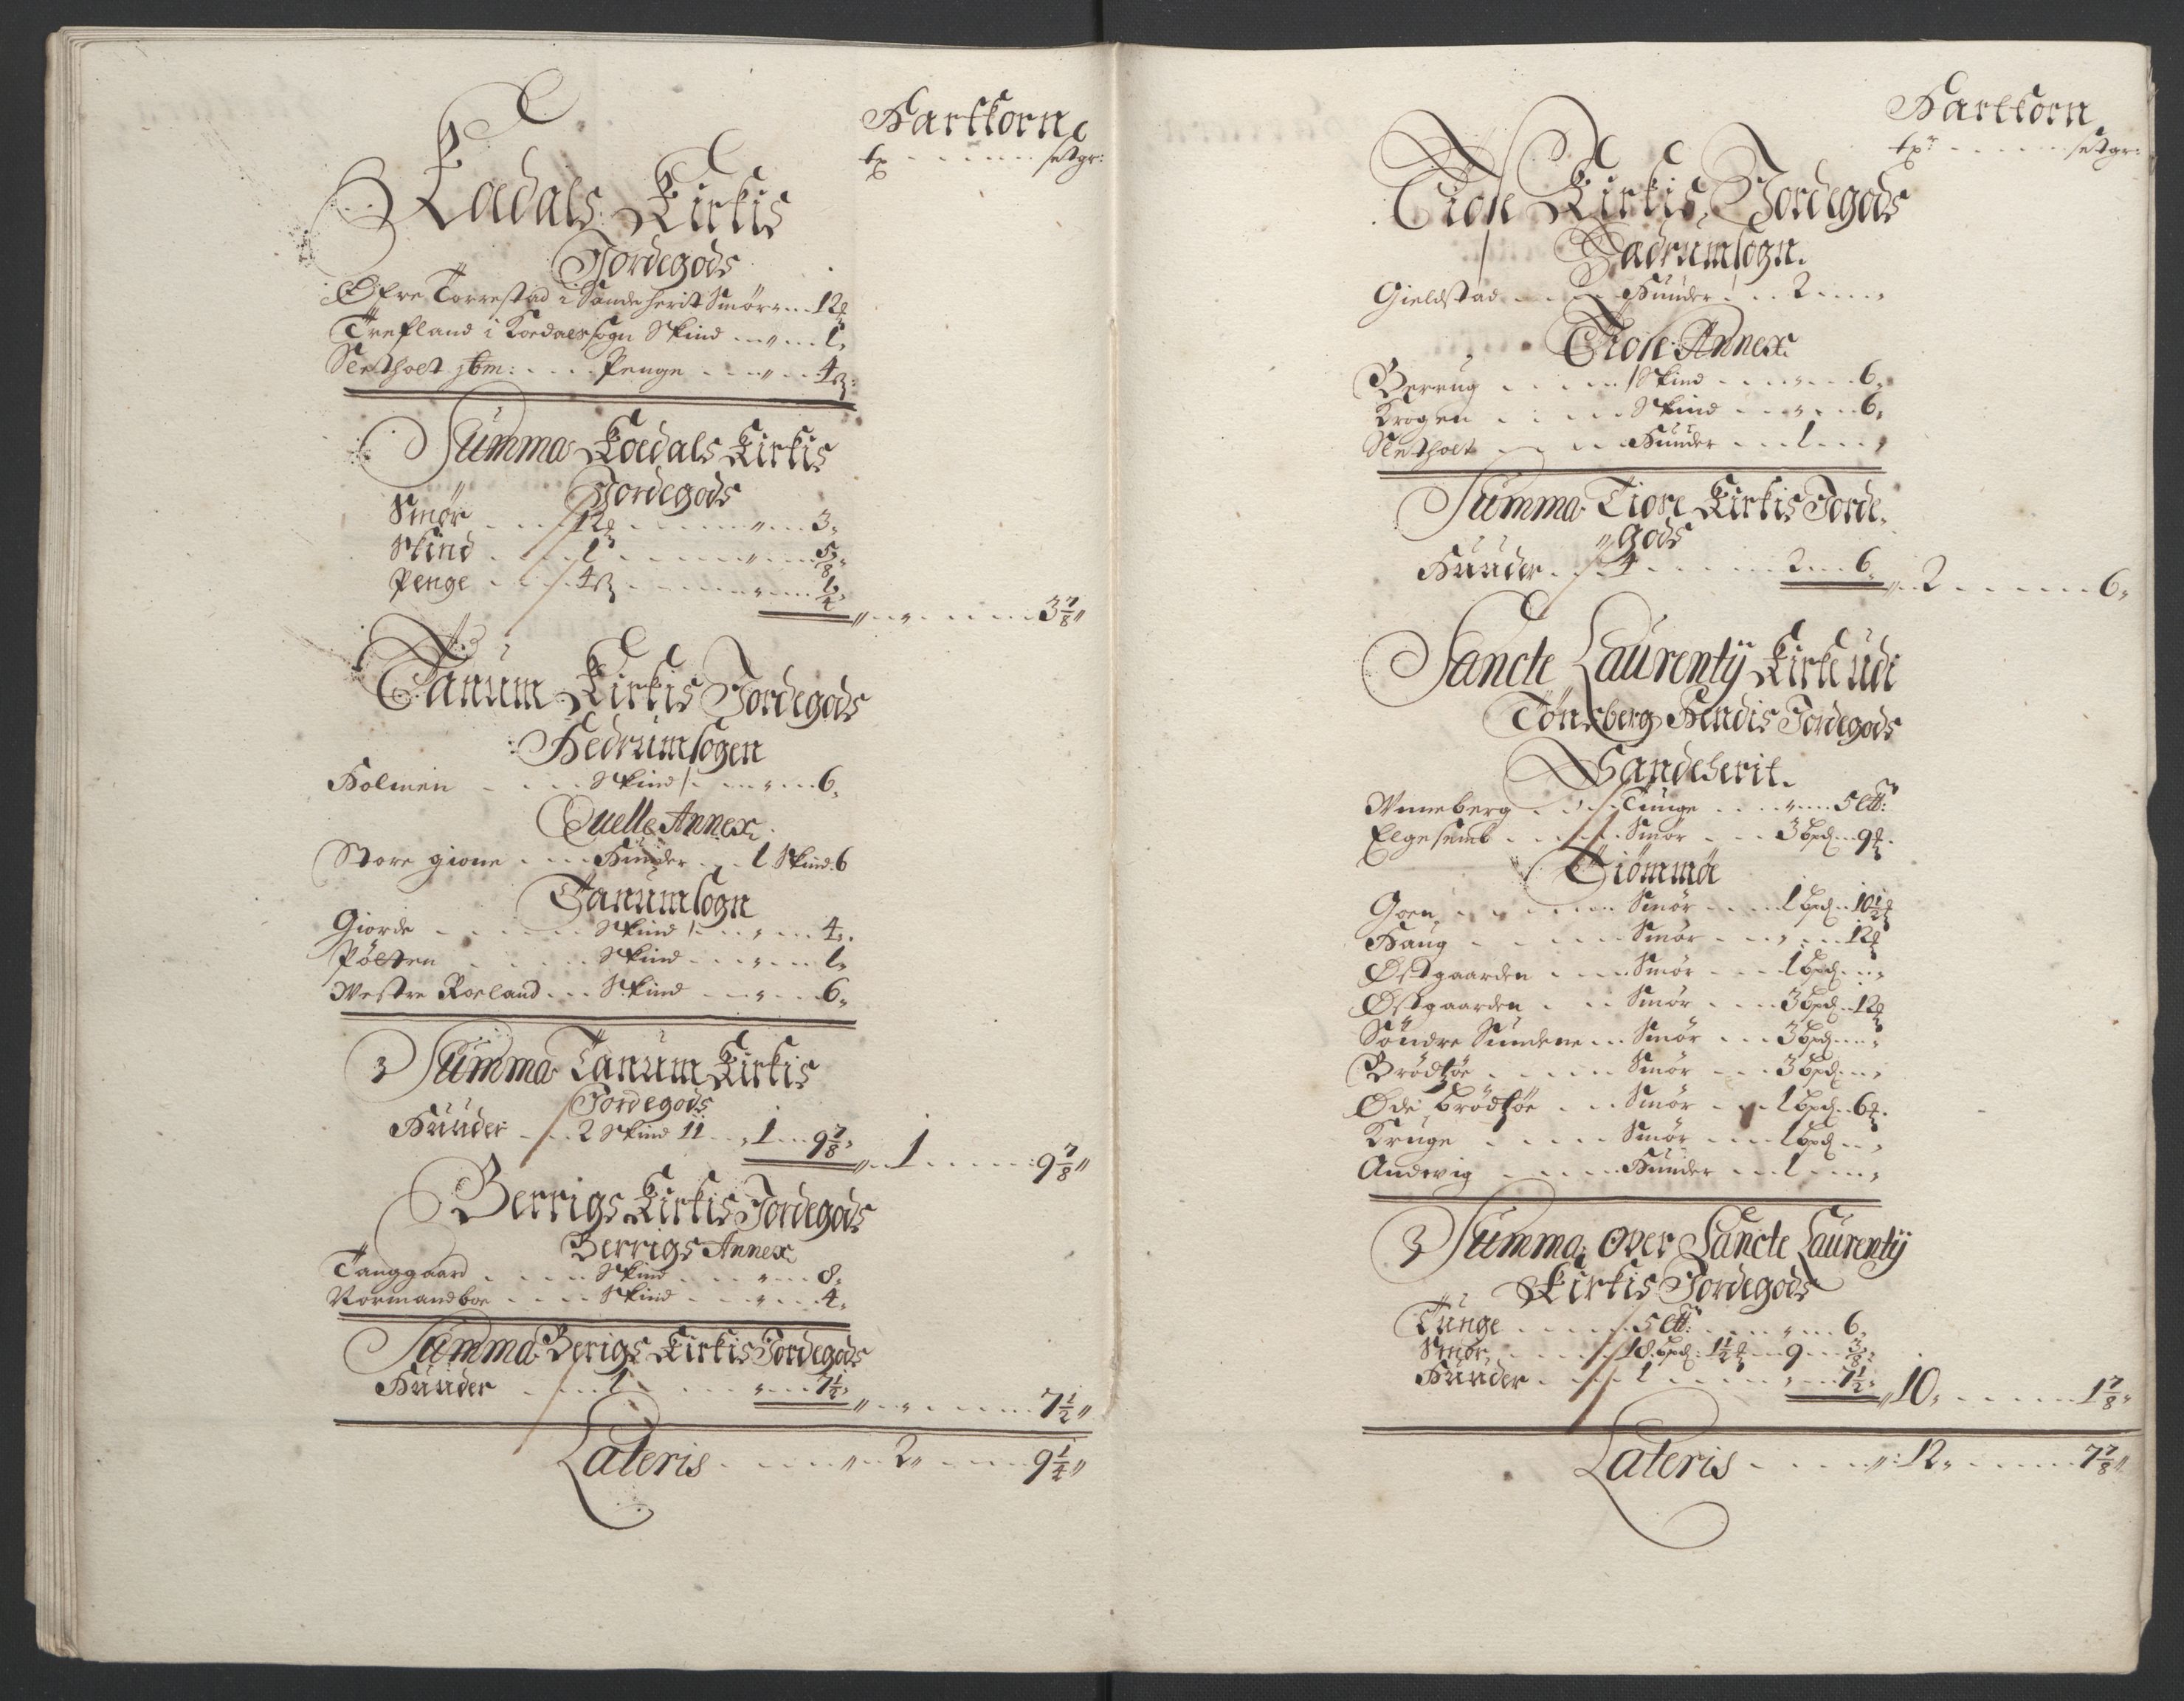 Hartkorn
tp ... setgr:
Kodals Kirkis
Jordegods
Øfre Torrestad i Sande herit Smør „ 12
Trefland i Kodals sogn Skind „ 1„
Sletholt jbm: Penge „ 4 ß:
Summa Kodals Kirkis
Jordegods
Smør 12 „ 3„
Skind 1 „ 5/8„
Penge 4 ß „ 1/4„
„ „ 3 7/8 „
Tanum Kirkis Jordegods
Hedrum sogen
Holmen Skind „ 6„
Quelle Annex
Store gione Huuder 1 Skind 6
Tanum sogn
Giorde Skind „ 4„
Pölsen Skind „ 1„
Westre Roeland Skind „ 6„
Summa Tanum Kirkis
Jordegods
Huuder 2 Skind 11 „ 1 9 7/8„
„ 1 9 7/8 „
Berrigs Kirkis Jordegods
Berrigs Annex
Tanggaard Skind „ 8„
Normandboe Skind „ 4„
Summa Berigs Kirkis Jordegods
Huuder 1 „ 7 1/2„
„ „ 7 1/2 „
Lateris „ 2„ 9 1/4 „
Hartkorn
tpr ... setgr:
Tiose Kirkis Jordegods
Hadrum sogn.
Gieldstad Huuder 2 „
Tiose Annex
Berrug Skind „ 6„
Krogen Skind „ 6„
Sletholt Huuder 1 „
Summa Tiose Kirkis Jorde„
„gods
Huuder 4 2 6„
„ 2 6„
Sancte Laurentij Kirke udi
Tönsberg Hendis Jordegods
Sandeherit.
Winneberg Tunge „ 5 Ltt:
Elgesemb Smør 3 bpd 9
Tiømmø
Goen Smør 1 bpd 10 1/2
Haug Smør „ 12
Østgaarden Smør 1 bpd „
Østgaarden Smør 3 bpd 12
Söndre Sundene Smør 3 bpd „
Brödtøe Smør 3 bpd „
Øde Brödtøe Smør 1 bpd 6
Kruge Smør 1 bpd „
Andevig Huuder 1 „
Summa over Sancte Laurentij
Kirkis Jordegods
Tunge 5 Ltt: „ 6„
Smør 18 bpd: 1 1/2 9 3/8„
Huuder 1 „ 7 1/2„
„ 10„ 1 7/8„
Lateris „ 12„ 7 7/8 „